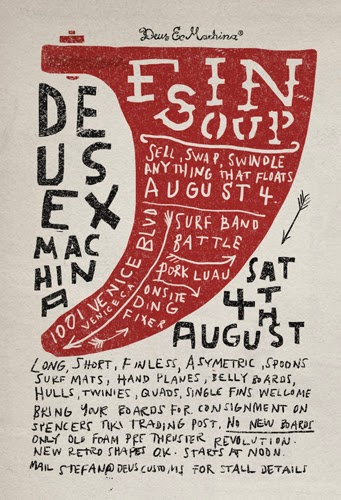 Deus Ex Machina®
FIN
SOUP
DE
US
EX
MAC
HIN
A
SELL, SWAP, SWINDLE
ANYTHING THAT FLOATS
AUGUST 4.
SURF BAND
BATTLE
PORK LUAU
ONSITE
DING
FIXER
1001 VENICE BLVD
VENICE, CA
SAT
4TH
AUGUST
LONG, SHORT, FINLESS, ASYMETRIC, SPOONS
SURF MATS, HAND PLANES, BELLY BOARDS,
HULLS, TWINIES, QUADS, SINGLE FINS WELCOME
BRING YOUR BOARDS FOR CONSIGNMENT ON
SPENCERS TIKI TRADING POST, NO NEW BOARDS
ONLY OLD FOAM PRE THRUSTER REVOLUTION.
NEW RETRO SHAPES O.K. STARTS AT NOON.
MAIL STEFAN@DEUSCUSTOMS FOR STALL DETAILS